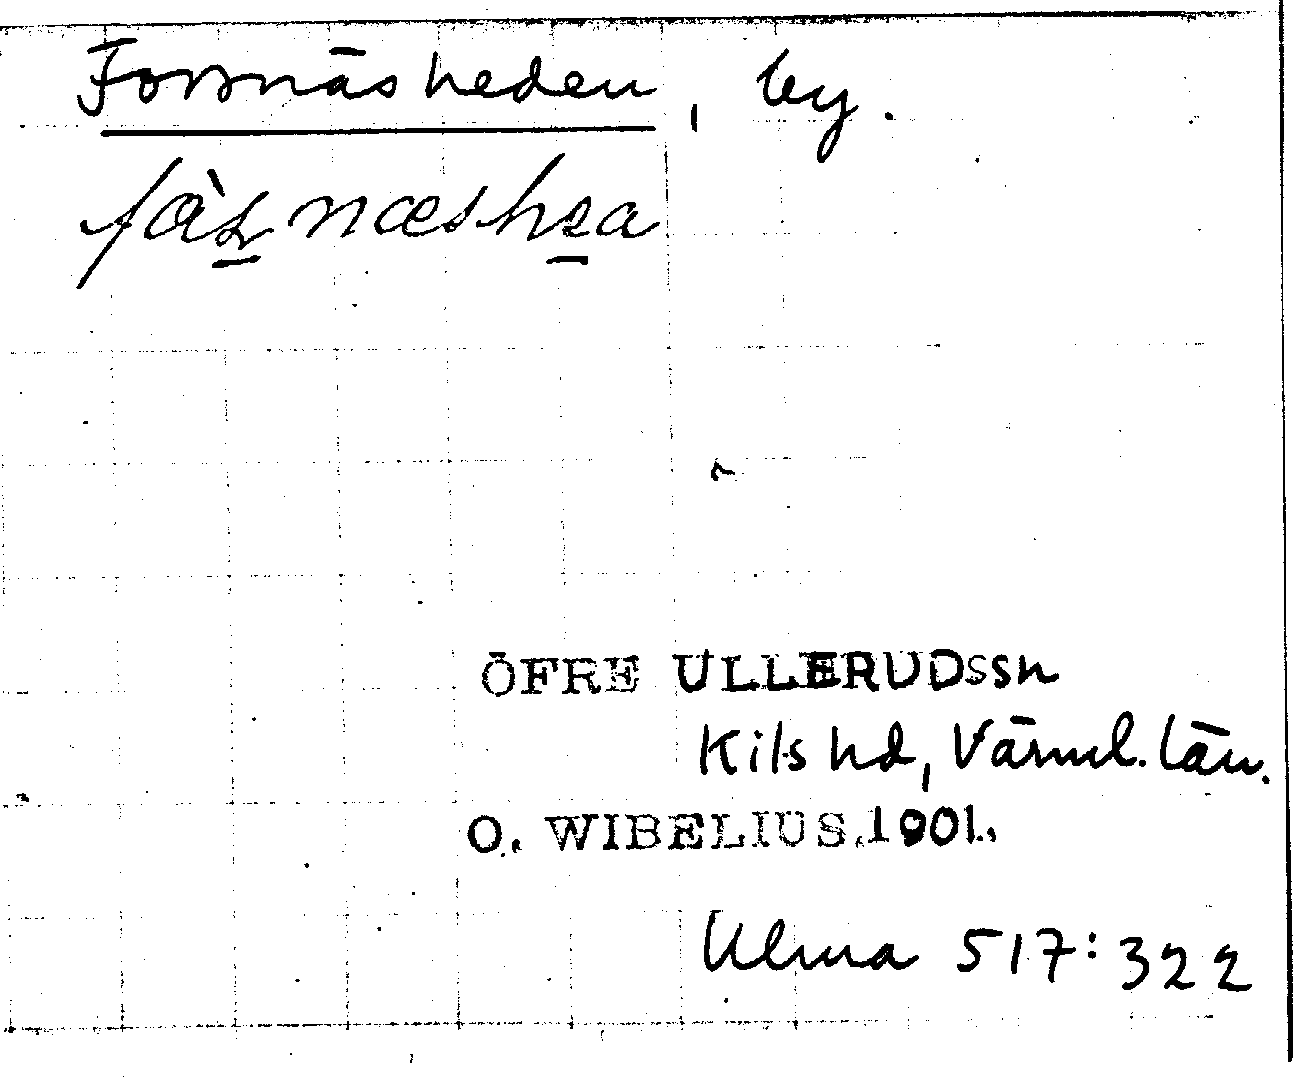 Forsnäsheden, by.
ÖFRE ULLERUDssn
Kils hd, Värml. län.
O. WIBELIUS. 1901.
Ulma 517:322